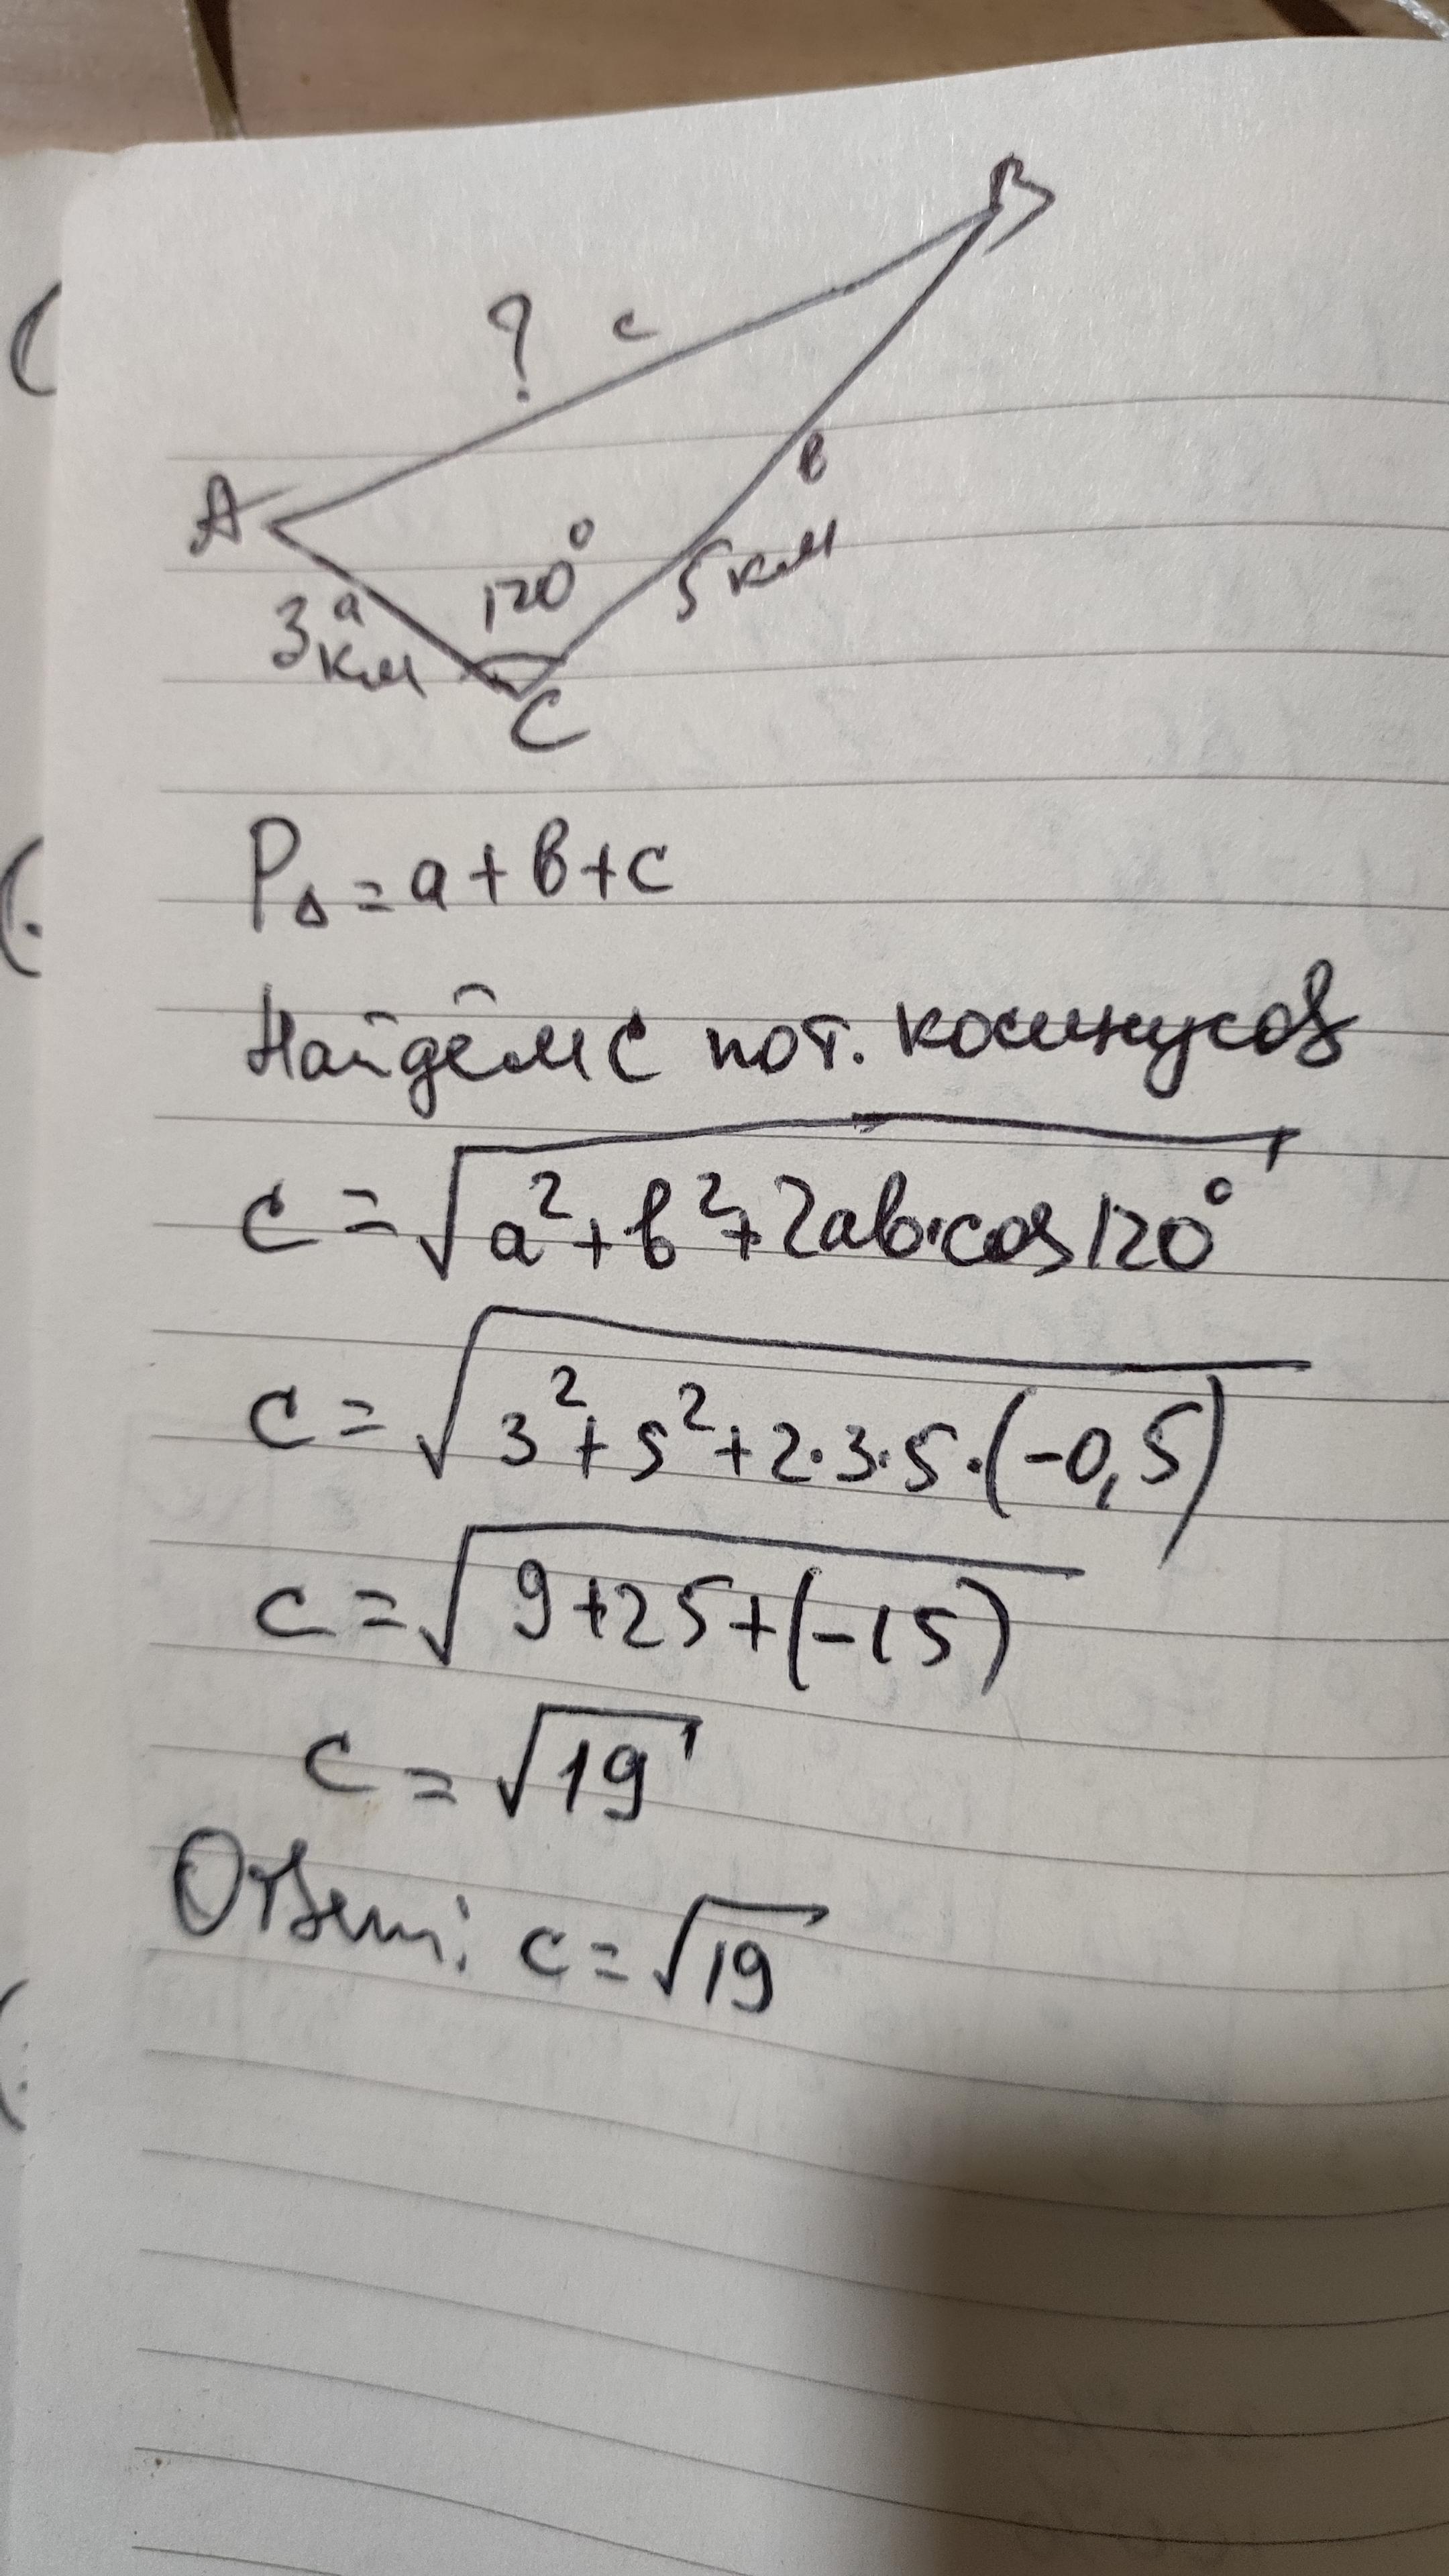 B
? c
A
120°
в
5 км
3 а
км
C
P△ = a + в + c
Найдём c по т. косинусов
c = √(a² + b² + 2ab·cos 120°)
c = √(3² + 5² + 2·3·5·(-0,5))
c = √(9 + 25 + (-15))
c = √19
Ответ: c = √19